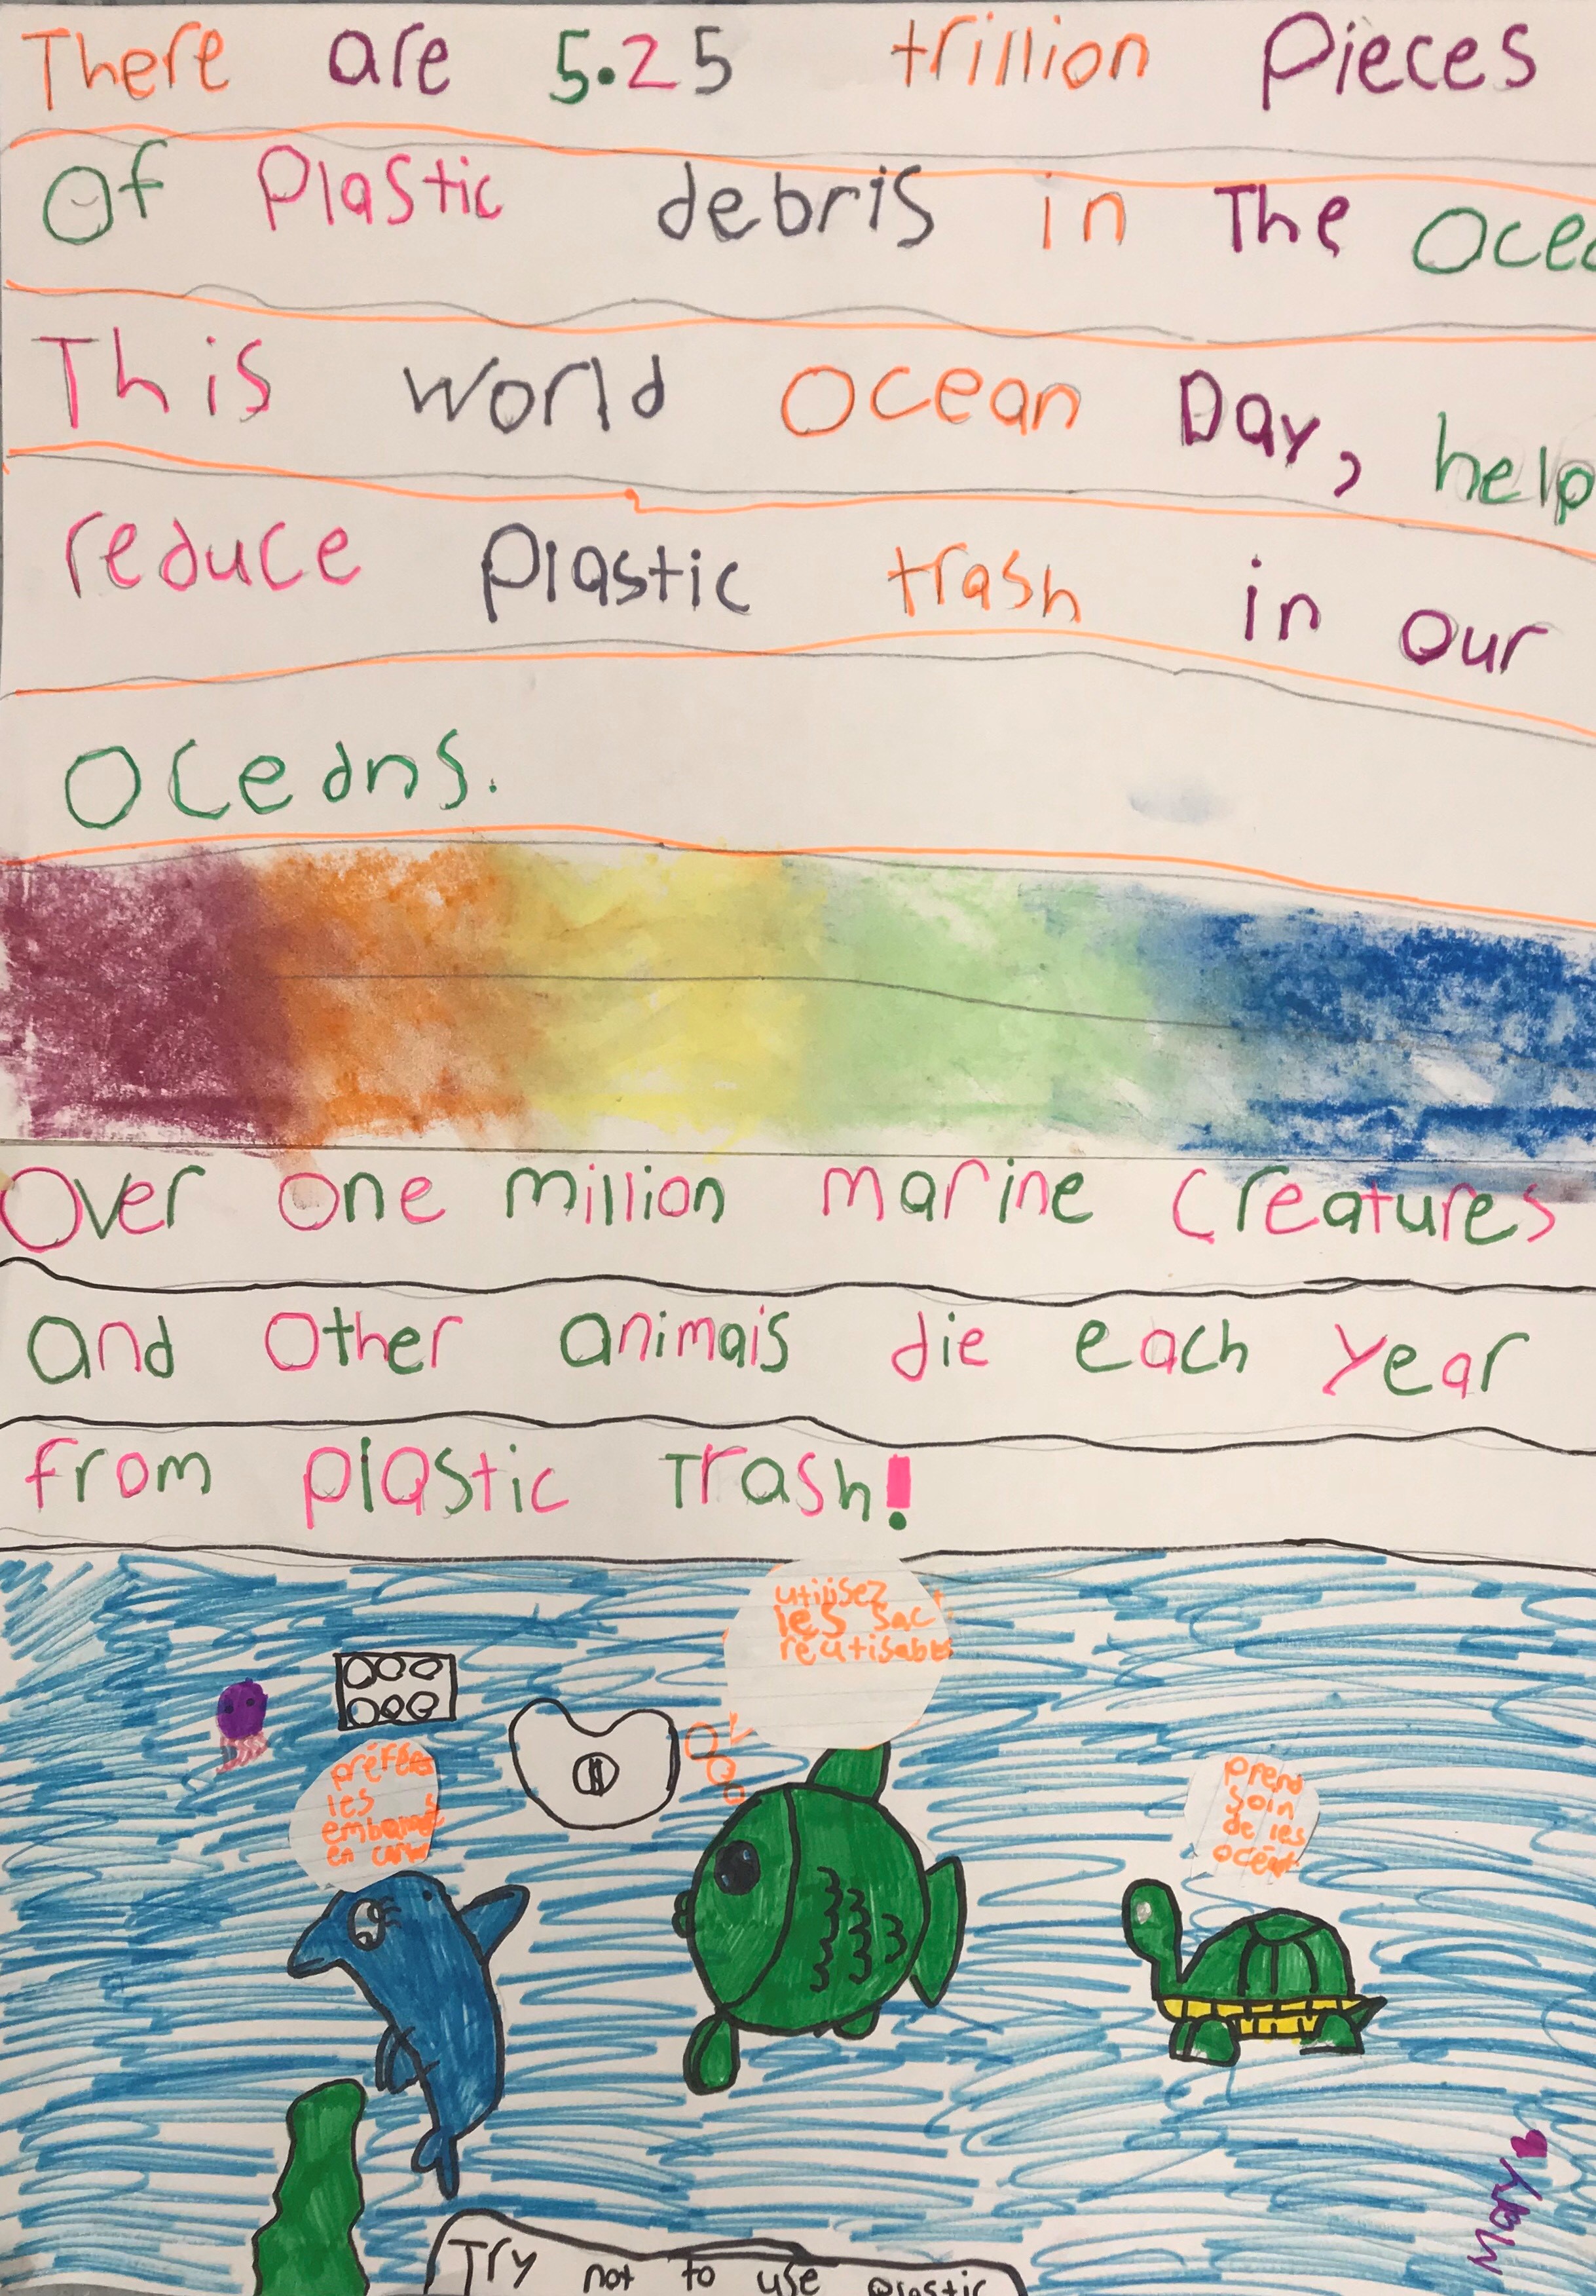 There are 5.25 trillion Pieces
Of Plastic debris in The Ocea
This world Ocean Day, help
reduce Plastic trash in our
Oceans.
Over one million marine Creatures
and Other animals die each year
from plastic Trash!
utilisez
les sac
réutisables
préférer
les
en
prend
soin
de les
océan
Try not to use plastic
Mary